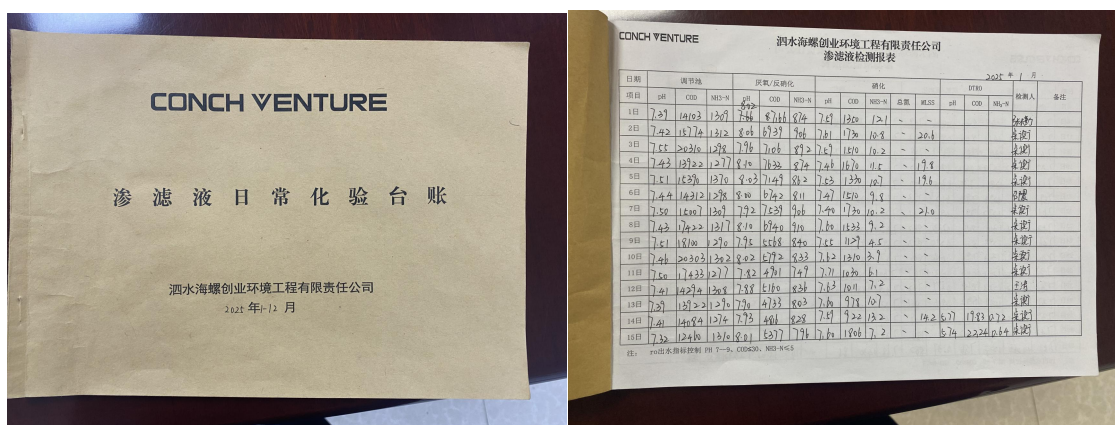 CONCH VENTURE
渗滤液日常化验台账
泗水海螺创业环境工程有限责任公司
2025年1-12月
CONCH VENTURE
泗水海螺创业环境工程有限责任公司
渗滤液检测报表
2025年1月
日期 调节池 厌氧/反硝化 硝化 DTRO 检测人 备注
项目 pH COD NH3-N pH COD NH3-N pH COD NH3-N 总氮 MLSS pH COD NH₃-N
1日 7.39 14103 1309 7.66 874 7.59 1350 12.1 - -
2日 7.42 15774 1312 8.06 6939 906 7.61 1730 10.8 - 20.6
3日 7.55 20310 1298 7.96 7106 892 7.59 1510 10.2 - -
4日 7.43 13922 1277 8.10 7632 874 7.46 1670 11.5 - 19.8
5日 7.51 15390 1370 8.03 7149 862 7.53 1330 10.7 - 19.6
6日 7.44 14312 1298 8.00 6742 811 7.47 1510 9.8 - -
7日 7.50 15007 1309 7.92 7539 906 7.40 1730 10.2 - 21.0
8日 7.43 17422 1317 8.10 6940 910 7.60 1533 9.2 - -
9日 7.51 18100 1290 7.95 5568 840 7.55 1129 4.5 - -
10日 7.46 20303 1302 8.02 5792 833 7.62 1310 3.9 - -
11日 7.50 17433 1277 7.82 4901 749 7.71 1030 6.1 - -
12日 7.41 14294 1308 7.88 5160 836 7.63 1011 7.2 - -
13日 7.39 13922 1290 7.90 4733 803 7.60 978 10.7 - -
14日 7.41 14084 1274 7.93 4816 828 7.59 922 13.2 - 14.2 5.77 19.83 0.72
15日 7.32 12460 1310 8.01 5377 796 7.60 1806 7.2 - - 5.74 22.24 0.64
注： ro出水指标控制 PH 7—9、COD≤30、NH3-N≤5